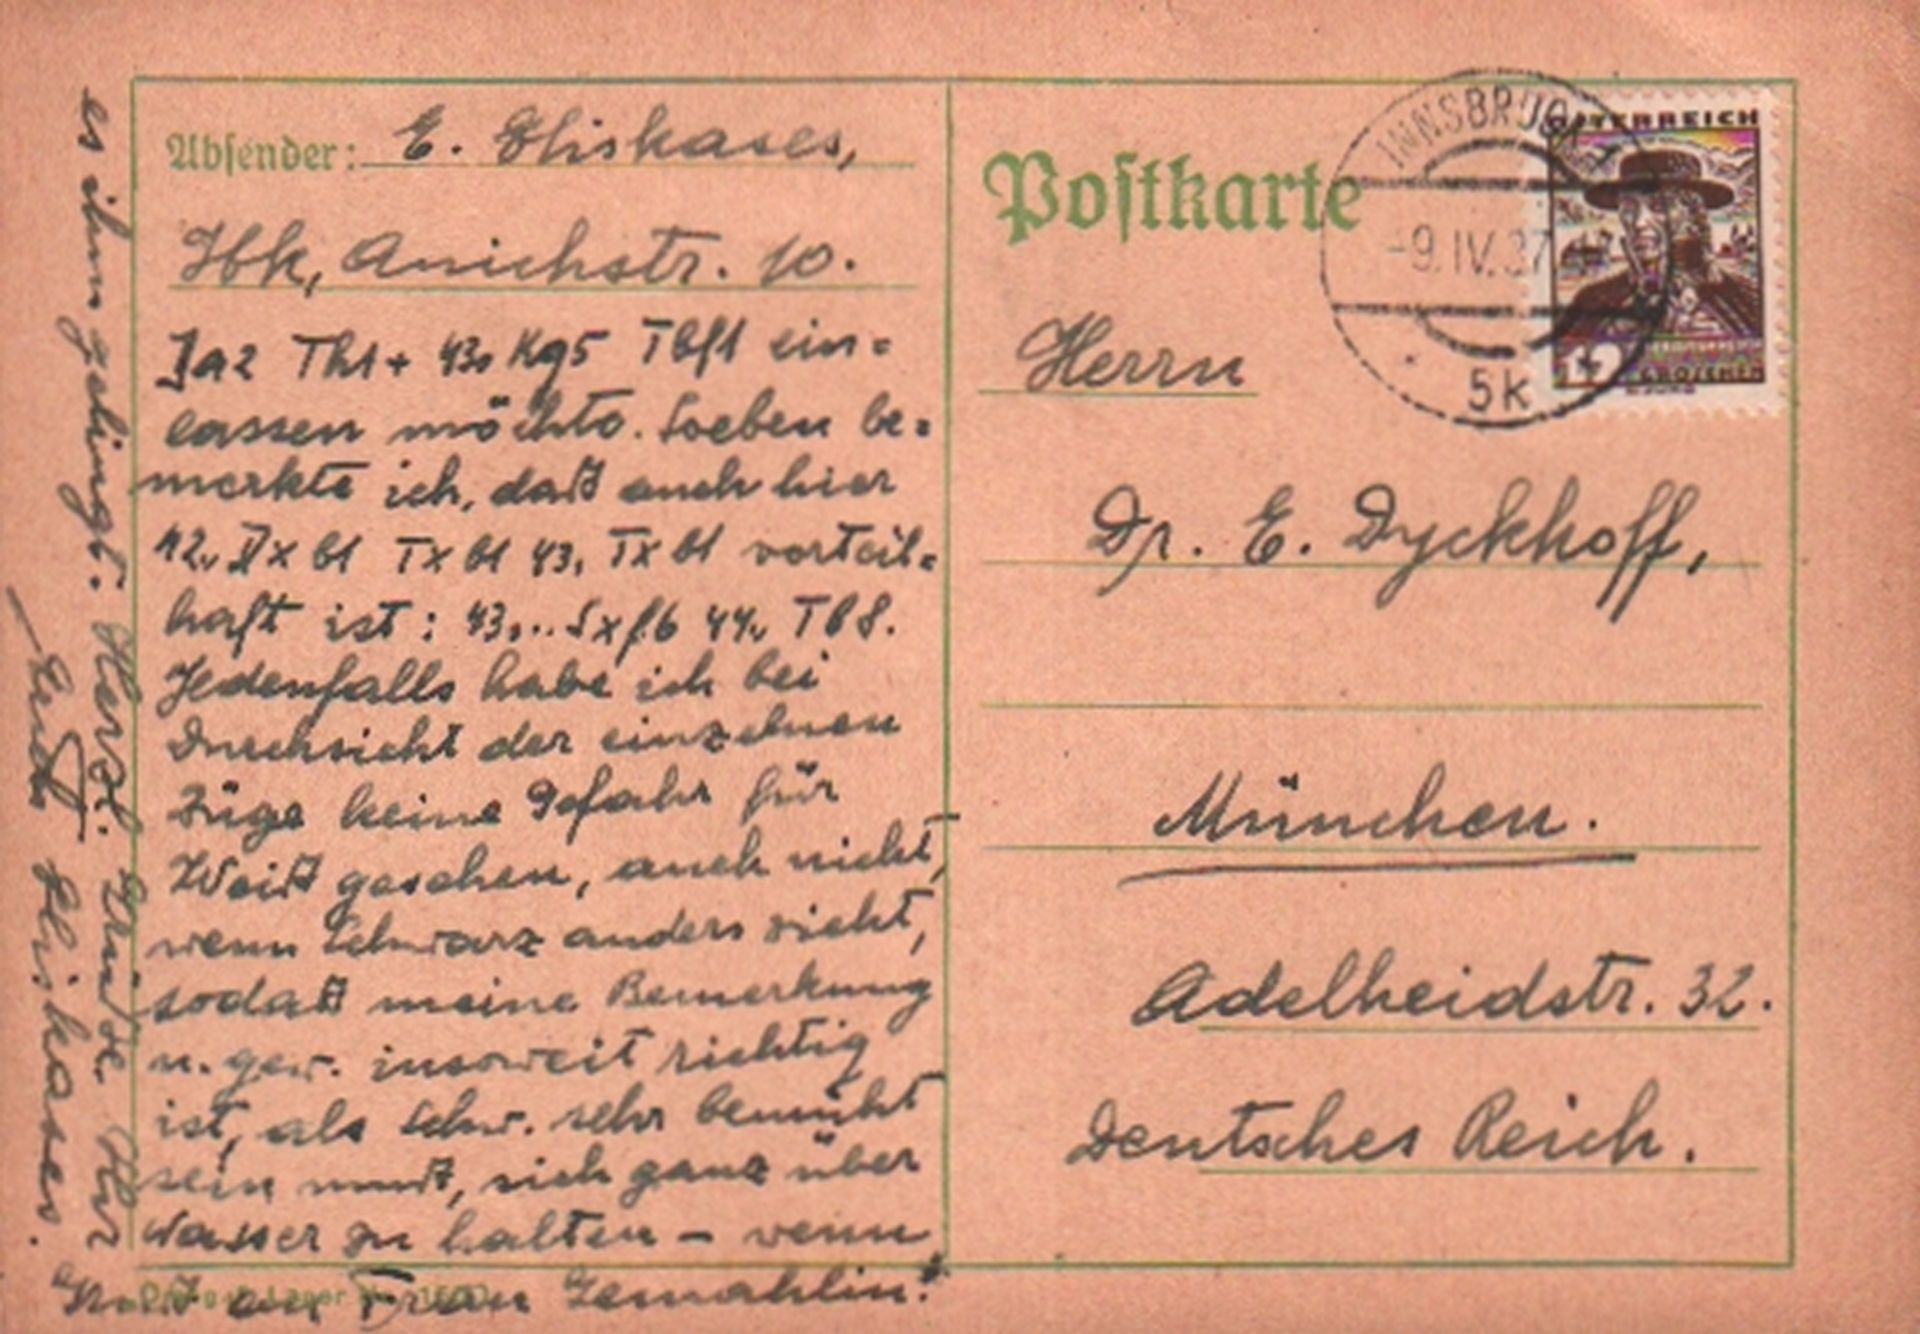 Absender: E. Eliskases,
Ibk, Anichstr. 10.
Th1+ 43. Kg5 Tbf1 ein=
lassen möchte. Soeben be=
merkte ich, daß auch hier
42. b1 Tx b1 43. Tx b1 vorteil=
haft ist: 43... Sx f6 44. Tb8.
Jedenfalls habe ich bei
Durchsicht der einzelnen
Züge keine Gefahr für
Weiß gesehen, auch nicht,
wenn Schwarz anders zieht,
sodaß meine Bemerkung
u. gew. insoweit richtig
ist, als Schw. sehr bemüht
sein muß, sich ganz über
Wasser zu halten – wenn
es ihm gelingt. Herzl. Grüße Ihr
Erich Eliskases.
Gruß an Frau Gemahlin!
Postkarte
INNSBRUCK
-9.IV.37
5k
ÖSTERREICH
GROSCHEN
Herrn
Dr. E. Dyckhoff,
München.
Adelheidstr. 32.
Deutsches Reich.